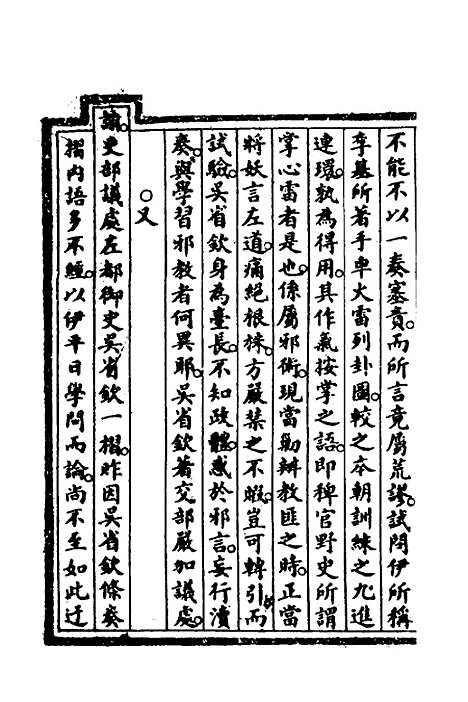 不能不以一奏塞責。而所言竟屬荒謬。試問伊所稱
李基所著手車大雷列卦圖。較之本朝訓練之九進
連環。孰為得用。其作氣按掌之語。即稗官野史所謂
掌心雷者是也。係屬邪術。現當勦辦教匪之時。正當
將妖言左道。痛絕根株。方嚴禁之不暇。豈可轉引而
試驗。吳省欽身為臺長。不知政體。惑於邪言。妄行瀆
奏。與學習邪教者何異耶。吳省欽著交部嚴加議處。
○又
諭。吏部議處左都御史吳省欽一摺。昨因吳省欽條奏
摺內語多不經。以伊平日學問而論。尚不至如此迂